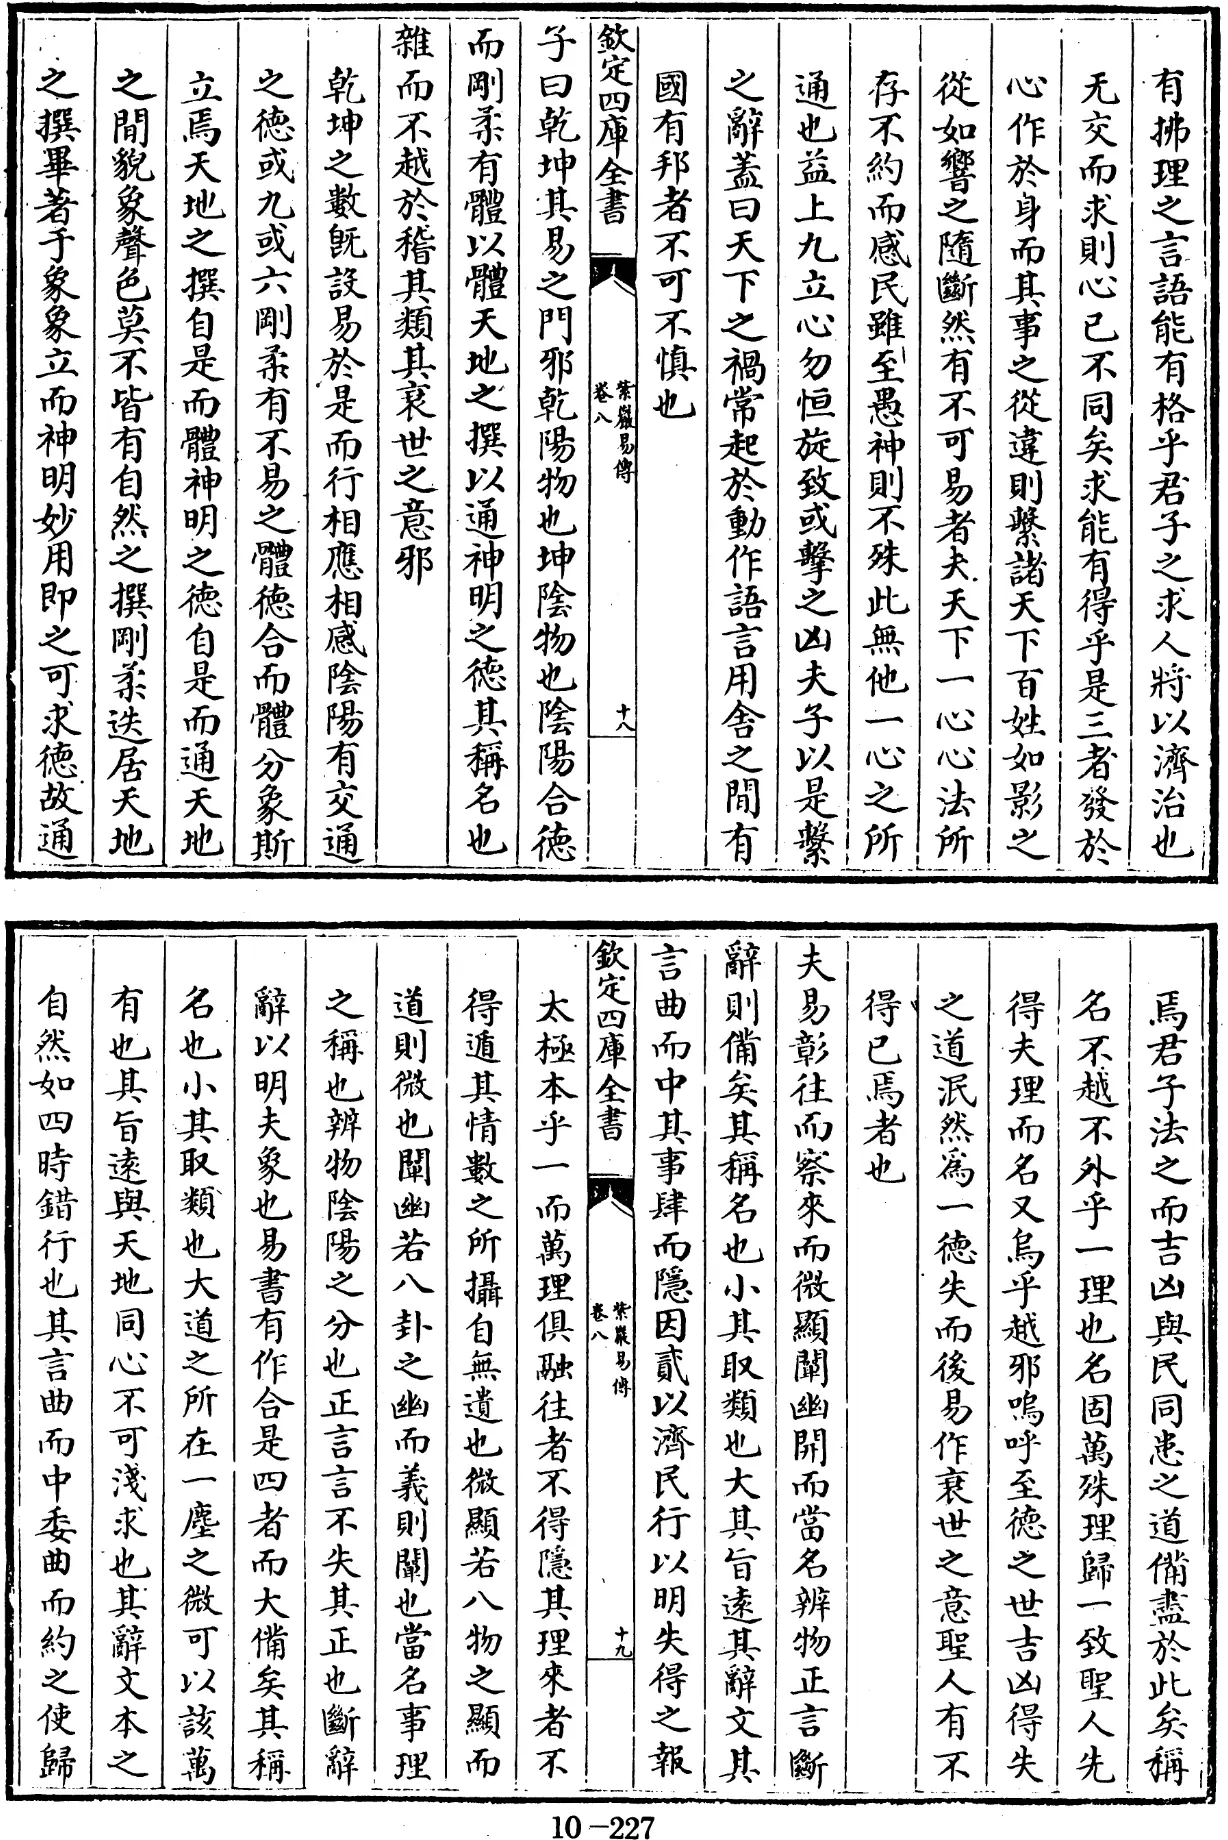 有拂理之言語能有格乎君子之求人將以濟治也
无交而求則心已不同矣求能有得乎是三者發於
心作於身而其事之從違則繫諸天下百姓如影之
從如響之隨斷然有不可易者夫天下一心心法所
存不約而感民雖至愚神則不殊此無他一心之所
通也益上九立心勿恒旋致或擊之凶夫子以是繫
之辭蓋曰天下之禍常起於動作語言用舍之間有
國有邦者不可不慎也
欽定四庫全書
紫巖易傳
卷八
十八
子曰乾坤其易之門邪乾陽物也坤陰物也陰陽合德
而剛柔有體以體天地之撰以通神明之德其稱名也
雜而不越於稽其類其衰世之意邪
乾坤之數既設易於是而行相應相感陰陽有交通
之德或九或六剛柔有不易之體德合而體分象斯
立焉天地之撰自是而體神明之德自是而通天地
之間貌象聲色莫不皆有自然之撰剛柔迭居天地
之撰畢著于象象立而神明妙用即之可求德故通
焉君子法之而吉凶與民同患之道備盡於此矣稱
名不越不外乎一理也名固萬殊理歸一致聖人先
得夫理而名又烏乎越邪嗚呼至德之世吉凶得失
之道泯然為一德失而後易作衰世之意聖人有不
得已焉者也
夫易彰往而察來而微顯闡幽開而當名辨物正言斷
辭則備矣其稱名也小其取類也大其旨遠其辭文其
言曲而中其事肆而隱因貳以濟民行以明失得之報
欽定四庫全書
紫巖易傳
卷八
十九
太極本乎一而萬理俱融往者不得隱其理來者不
得遁其情數之所攝自無遺也微顯若八物之顯而
道則微也闡幽若八卦之幽而義則闡也當名事理
之稱也辨物陰陽之分也正言言不失其正也斷辭
辭以明夫象也易書有作合是四者而大備矣其稱
名也小其取類也大道之所在一塵之微可以該萬
有也其旨遠與天地同心不可淺求也其辭文本之
自然如四時錯行也其言曲而中委曲而約之使歸
10-227